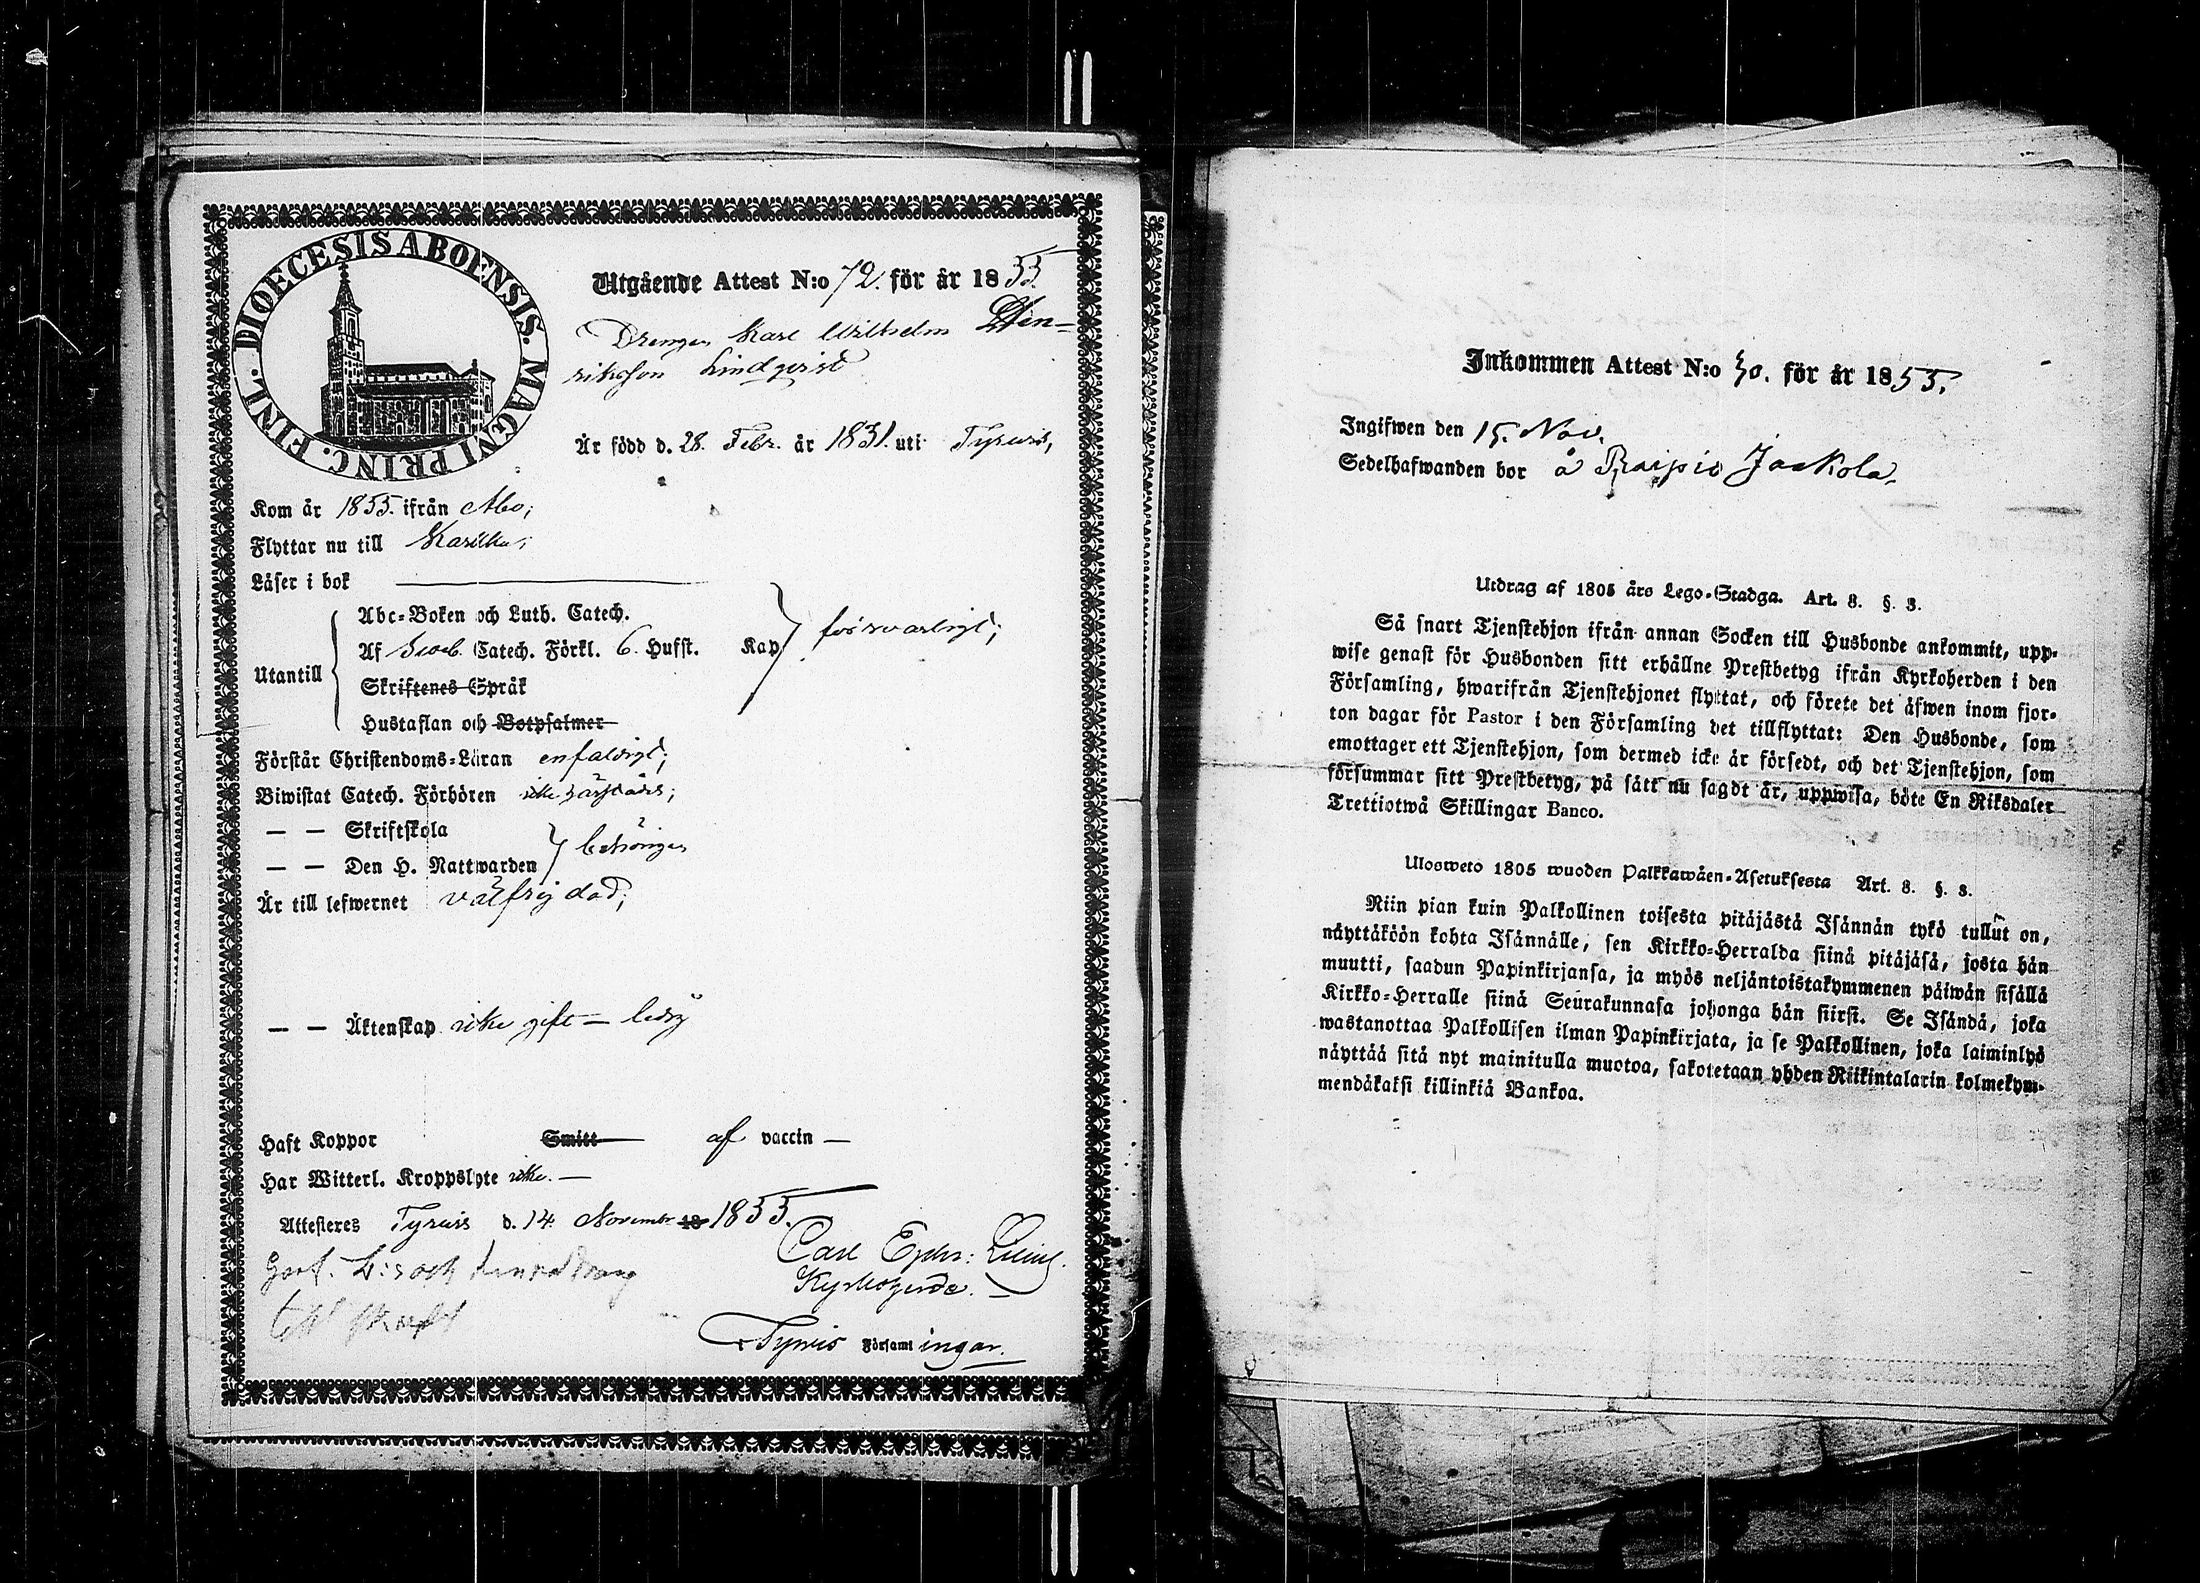 DIOECESIS ABOENSIS. MAGNI PRINC. FINL.
Utgående Attest N:o 72. för år 1855.
Drengen Karl Wilhelm Hen-
rikson Lindqvist
Är född d. 28. Febr. år 1831. uti Tyrvis,
Kom år 1855. ifrån Åbo;
Flyttar nu till Karkku;
Läser i bok
Utantill
Abc-Boken och Luth. Catech.
Af Sveb. Catech. Förkl. 6. Hufst. Kap försvarligt;
Skriftenes Språk
Hustaflan och Botpsalmer
Förstår Christendoms-Läran enfaldigt;
Biwistat Catech. Förhören
— — Skriftskola
— — Den H. Nattwarden } behörigen
Är till lefwernet välfrejdad;
— — Äktenskap icke gift — ledig
Haft Koppor Smitt af vaccin —
Har Witterl. Kroppslyte icke. —
Attesteres Tyrvis d. 14. Novembr 18 1855.
Carl Ephr:
Kyrkoherde. —
Tyrvis Församlingar.
Inkommen Attest N:o 30. för år 1855.
Ingifwen den 15. Nov.
Sedelhafwanden bor å Raipio Jaakola.
Utdrag af 1805 års Lego-Stadga. Art. 8. §. 3.
Så snart Tjenstehjon ifrån annan Socken till Husbonde ankommit, upp-
wise genast för Husbonden sitt erhållne Prestbetyg ifrån Kyrkoherden i den
Församling, hwarifrån Tjenstehjonet flyttat, och förete det äfwen inom fjor-
ton dagar för Pastor i den Församling det tillflyttat: Den Husbonde, som
emottager ett Tjenstehjon, som dermed icke är försedt, och det Tjenstehjon, som
försummar sitt Prestbetyg, på sätt nu sagdt är, uppwisa, böte En Riksdaler
Trettiotwå Skillingar Banco.
Ulosweto 1805 wuoden Palkkawäen-Asetuksesta Art. 8. §. 3.
Niin pian kuin Palkollinen toisesta pitäjästä Isännän tykö tullut on,
näyttäköön kohta Isännälle, sen Kirkko-Herralda siinä pitäjäsä, josta hän
muutti, saadun Papinkirjansa, ja myös neljäntoistakymmenen päiwän sisällä
Kirkko-Herralle siinä Seurakunnasa johonga hän siirsi. Se Isändä, joka
wastanottaa Palkollisen ilman Papinkirjata, ja se Palkollinen, joka laiminlyö
näyttää sitä nyt mainitulla muotoa, sakotetaan yhden Riikintalarin kolmekym-
mendäkaksi killinkiä Bankoa.